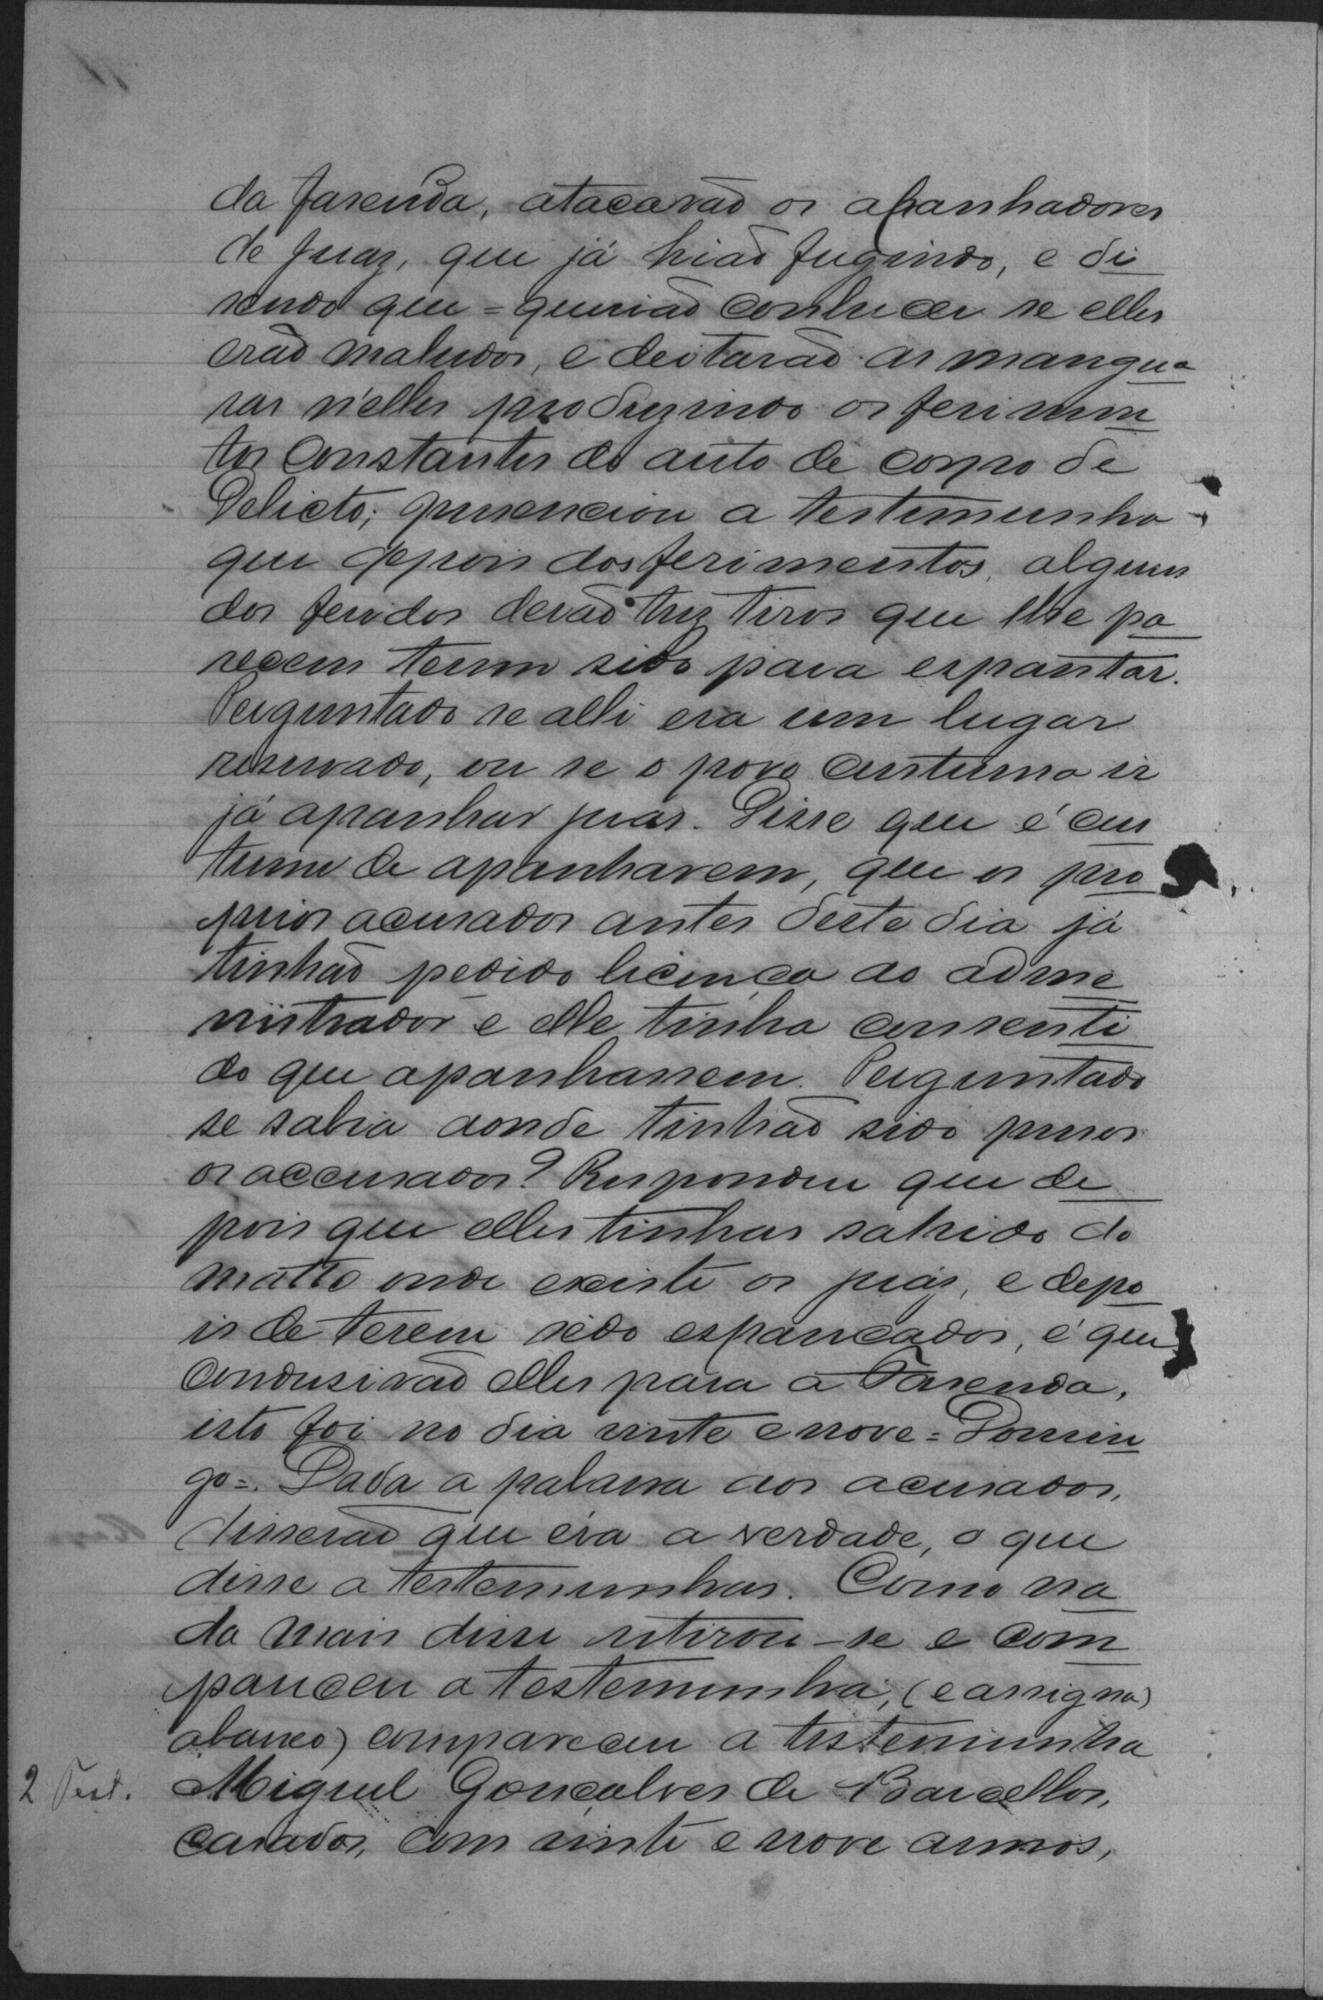 da fasenda, atacarão os apanhadores
de juaz, que já hião fugindo, e di
sendo que = querião conhecer se elles
erão maludos, e deitarão as mangua
ras n'elles produzindo os ferimen
tos constantes do auto de corpo de
Delicto; presenciou a testemunha
que depois dos ferimentos, alguns
dos feridos derão trez tiros que lhe pa
recem terem sido para espantar.
Perguntado se alli era um lugar
reservado, ou se o povo custuma ir
já apanhar juas. Disse que é cus
tume de apanharem, que os pro
prios acusados antes deste dia já
tinhão pedido licença ao adme
nistrador e elle tinha consenti
do que apanhassem. Perguntado
se sabia aonde tinhão sido presos
os accusados? Respondeu que de
pois que elles tinhas sahido do
matto onde existe os juáz, e depo
is de terem sido espancados, é que
condusirão elles para a Fasenda,
isto foi no dia vinte e nove = Domin
go =. Dada a palavra aos acusados,
disserão que éra a verdade, o que
disse a testemunhas. Como na
da mais disse retirou-se e com
pareceu a testemunha, (e assigna)
abaixo) compareceu a testemunha
2 Test. Miguel Gonçalves de Barcellos,
casados, com vinte e nove annos,